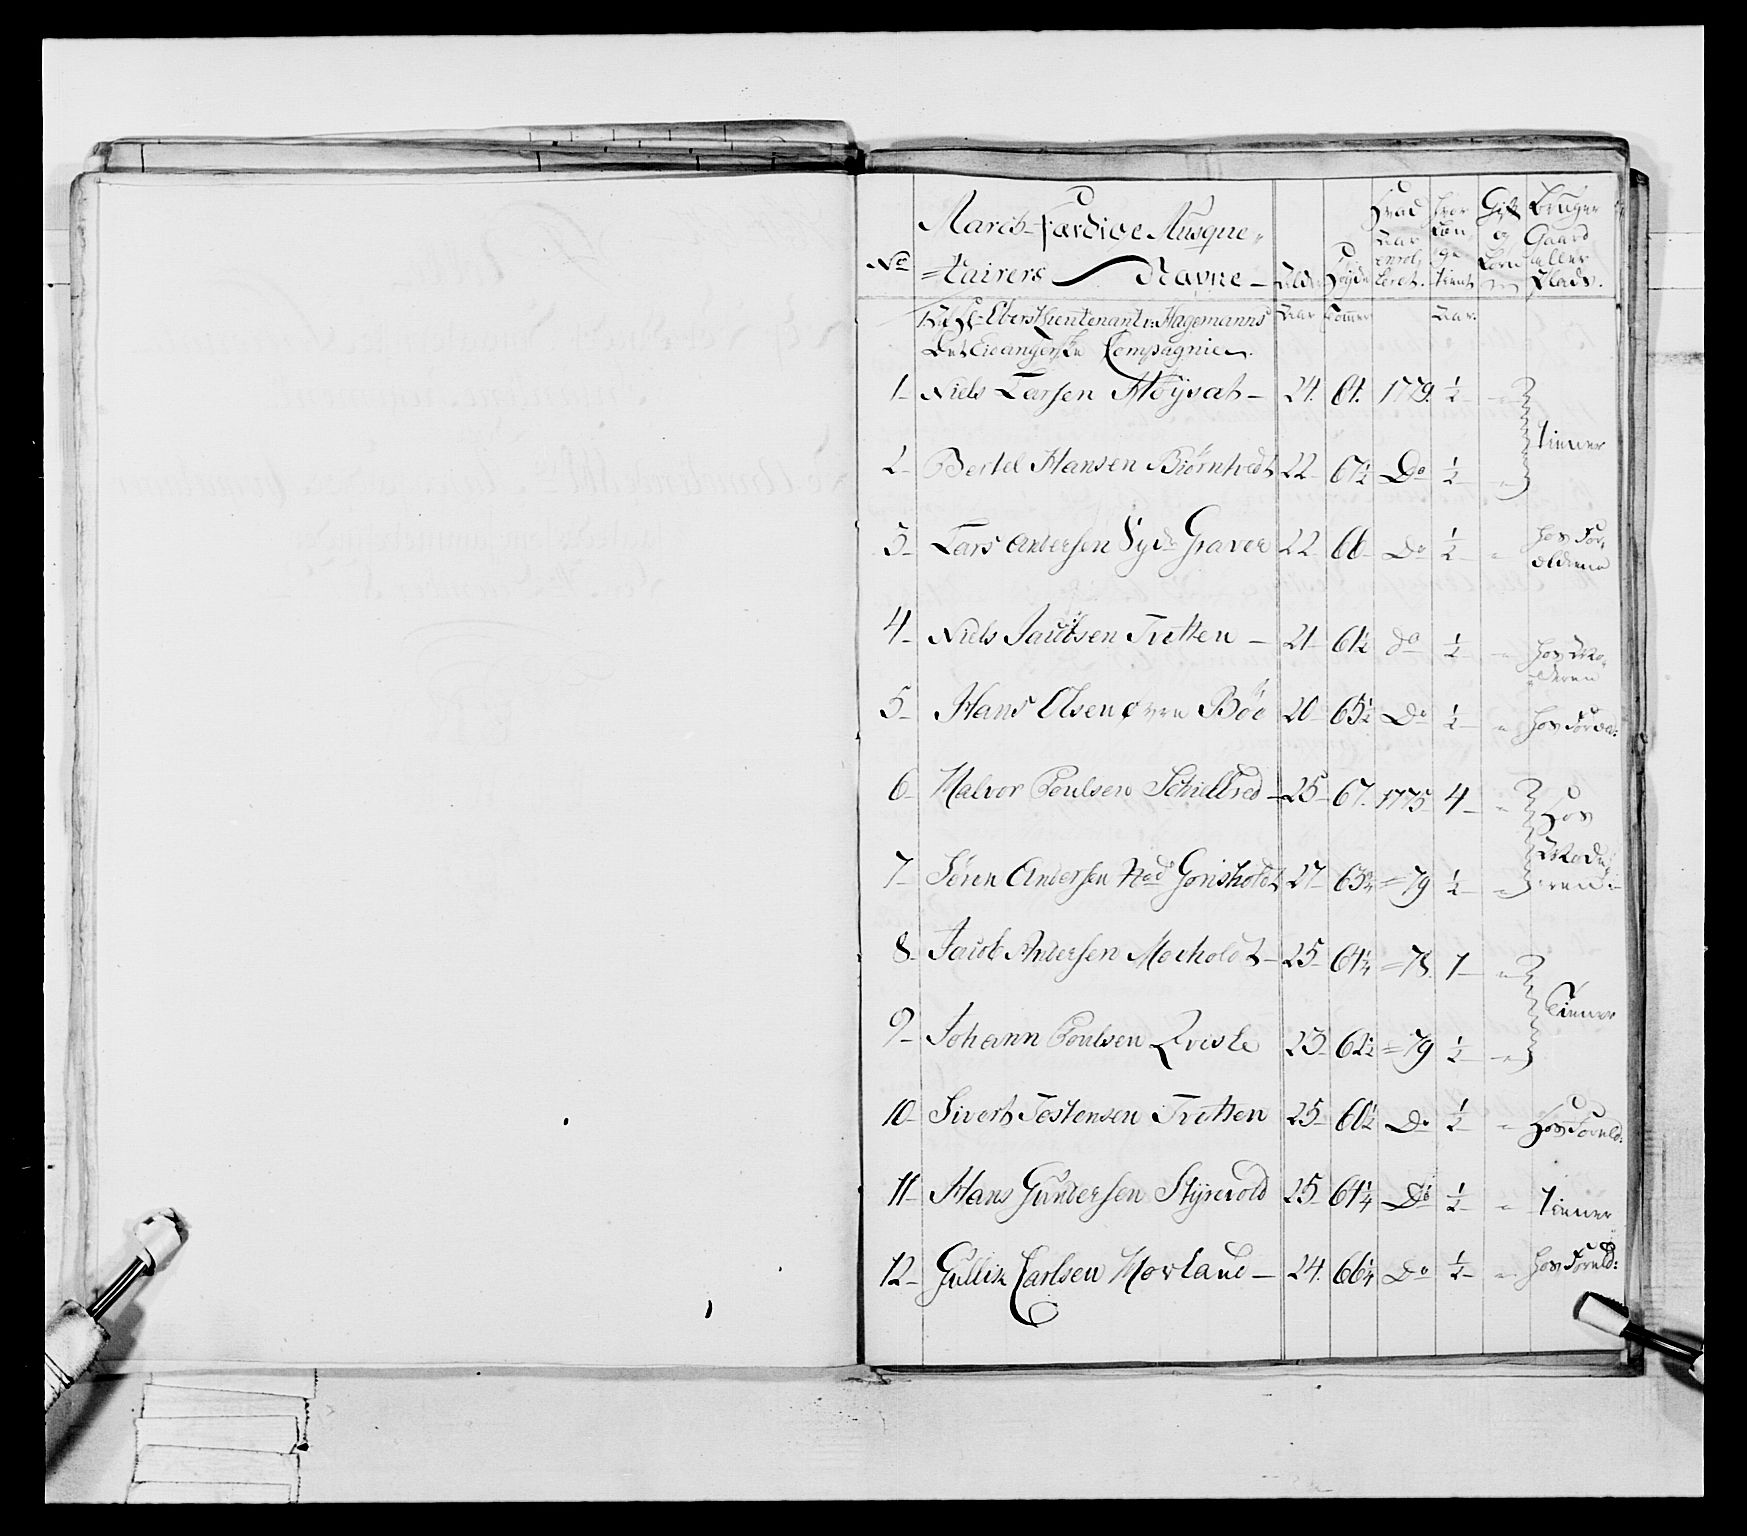 No
March-færdige Musque-
=tairers Navne
Alder
Høyde
Hvad Aar enrolleret.
Hvor længe tient
Gift og Børn
Bruger Gaard eller Plads.
Oberst Lieutenant v: Hagemanns
Aar
Tommer
Aar.
Det Eidangerske Compagnie.
1 - Niels Larsen Høÿsat - 24. 64. 1779. 1/2 "
tiener
2 - Bertel Hansen Biørntvedt 22 67 1/2 Do 1/2 "
3 - Lars Andersen Syd Graver 22 66 Do 1/2 " hos For,
ældrene
4 - Niels Jacobsen Tvetten - 21 61 1/2 do 1/2 " hos Mo-
deren
5 - Hans Olsen øvre Böe 20 65 1/2 Do 1/2 " hos Foræl:
6 - Halvor Poulsen Schielbred - 25 67. 1775 4 "
hos
Mode,
ren
7 - Sören Andersen Ned Gonsholdt 27 63 3/4 = 79 1/2 "
8 - Jacob Andersen Moeholdt - 25 64 1/4 = 78. 1 "
Tiener
9 - Johann Poulsen Qviste 23 62 1/2 = 79 1/2 "
10 - Sivert Testensen Tvetten 25 60 1/2 Do 1/2 " hos Foræld:
11 - Hans Gundersen Stÿrvold 25 61 1/4 Do 1/2 " tiener
12 - Gullik Carlsen Hovland - 24. 66 1/4 Do 1/2 " hos Foræld: